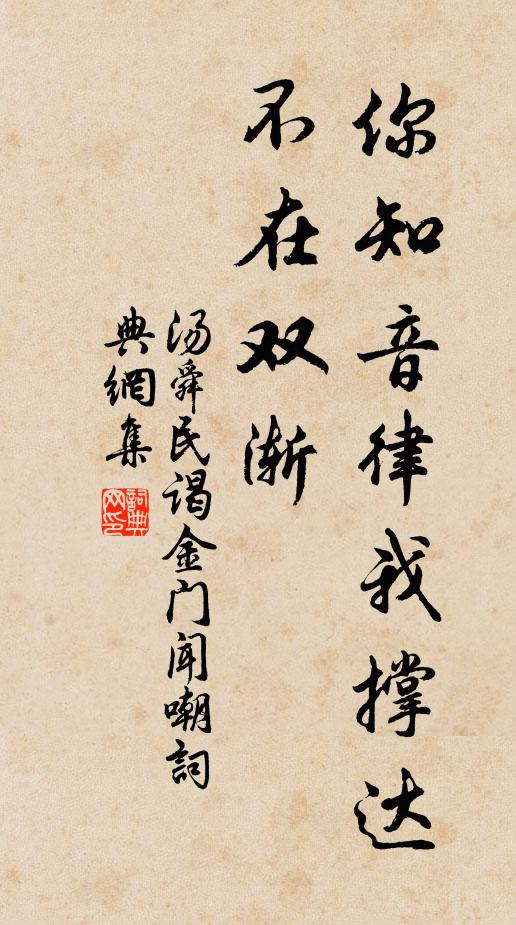 你知音律我撑达
不在双渐
汤舜民谒金门闻嘲詞
典網集
詞典网印